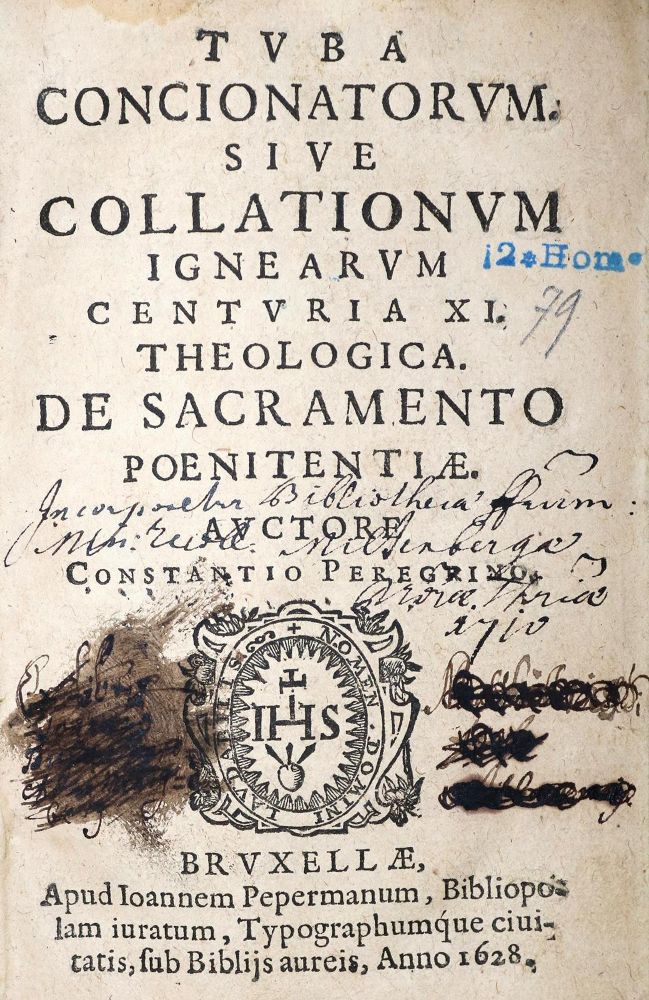 TVBA
CONCIONATORVM.
SIVE
COLLATIONVM
IGNEARVM
12*Hom.
CENTVRIA XI.
79
THEOLOGICA.
DE SACRAMENTO
POENITENTIÆ.
Incorporetur Bibliothecæ ffrum:
AVCTORE
Min: Miltenbergæ
CONSTANTIO PEREGRINO.
1710
Ex libris
LAVDABILE + NOMEN · DOMINI
IHS
BRVXELLÆ,
Apud Ioannem Pepermanum, Bibliopo-
lam iuratum, Typographumq́ue ciui-
tatis, sub Biblijs aureis, Anno 1628.